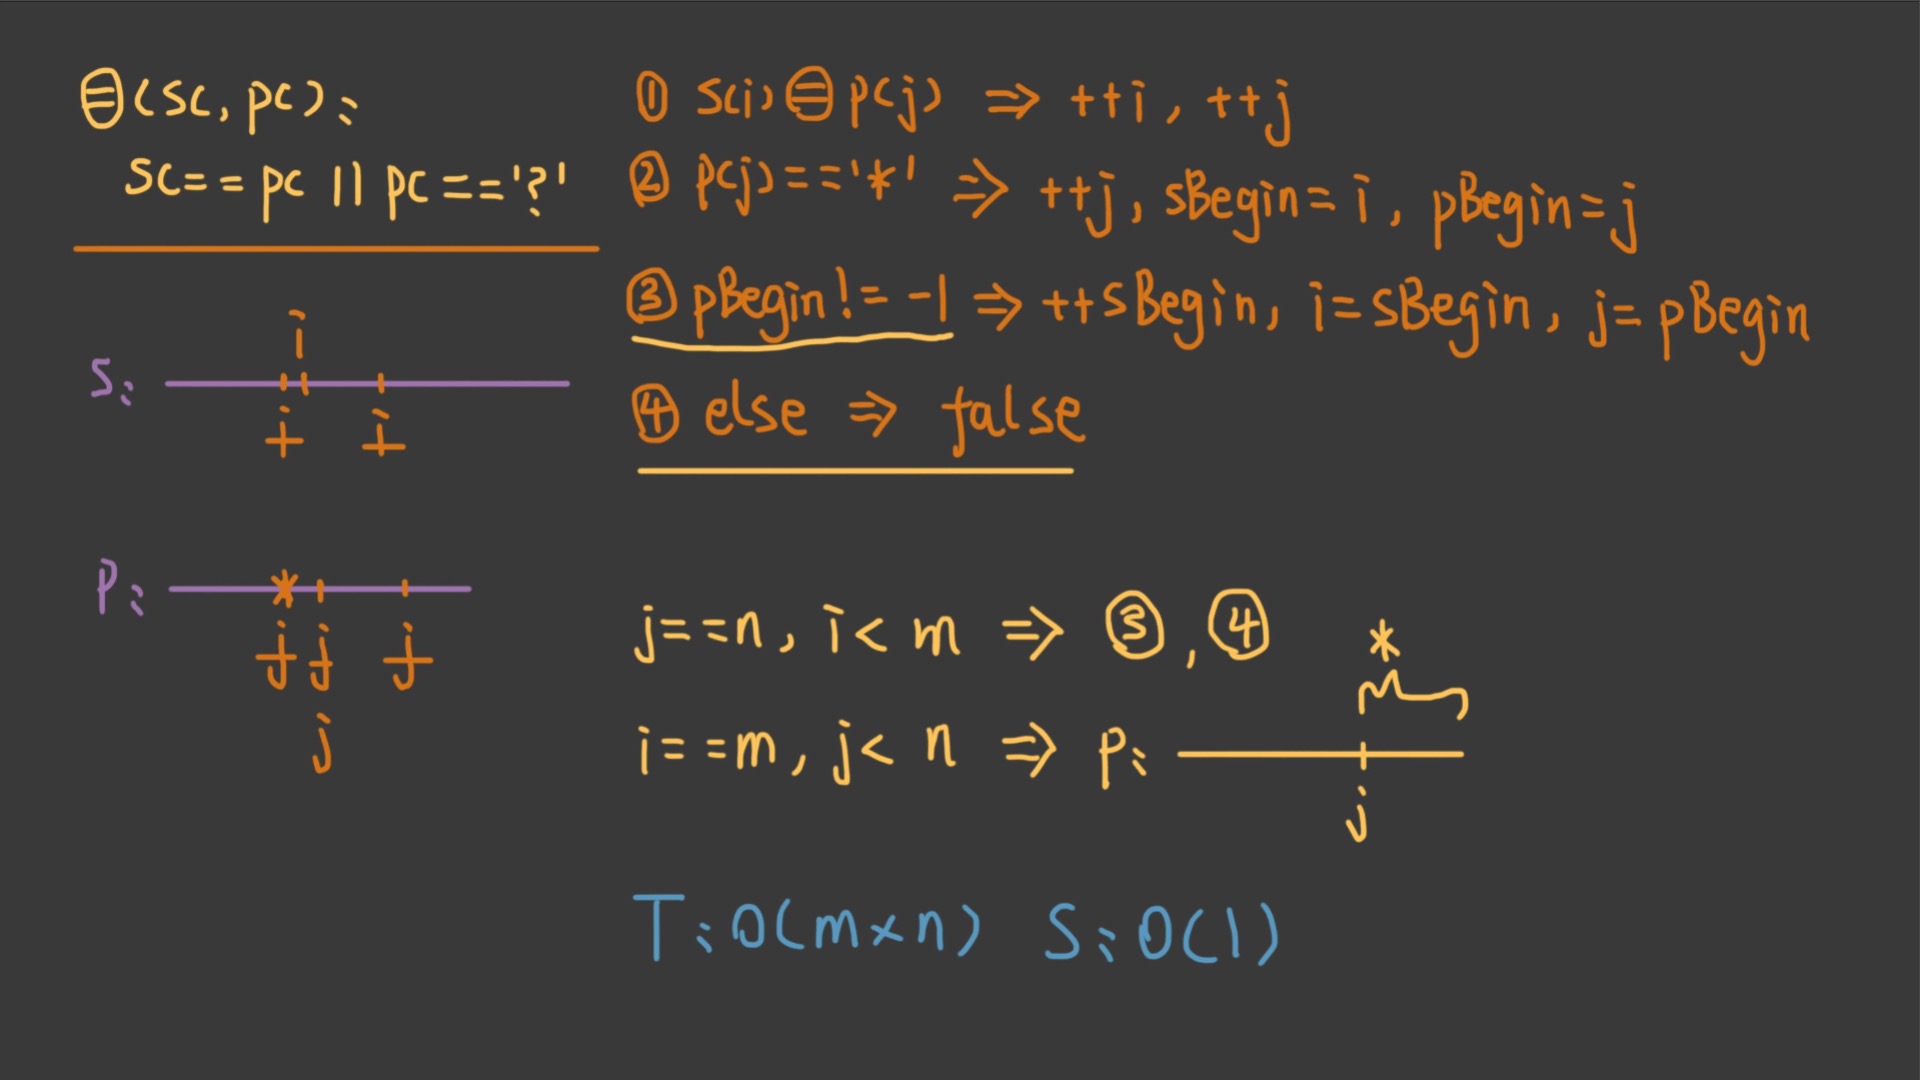 ⊜(sc, pc):
sc==pc || pc=='?'
① s(i) ⊜ p(j) ⇒ ++i, ++j
② p(j)=='*' ⇒ ++j, sBegin=i, pBegin=j
③ pBegin!=-1 ⇒ ++sBegin, i=sBegin, j=pBegin
④ else ⇒ false
i
s:
i i
p: *
j j j
j
j==n, i<m ⇒ ③, ④
*
i==m, j<n ⇒ p:
j
T: O(m×n) S: O(1)